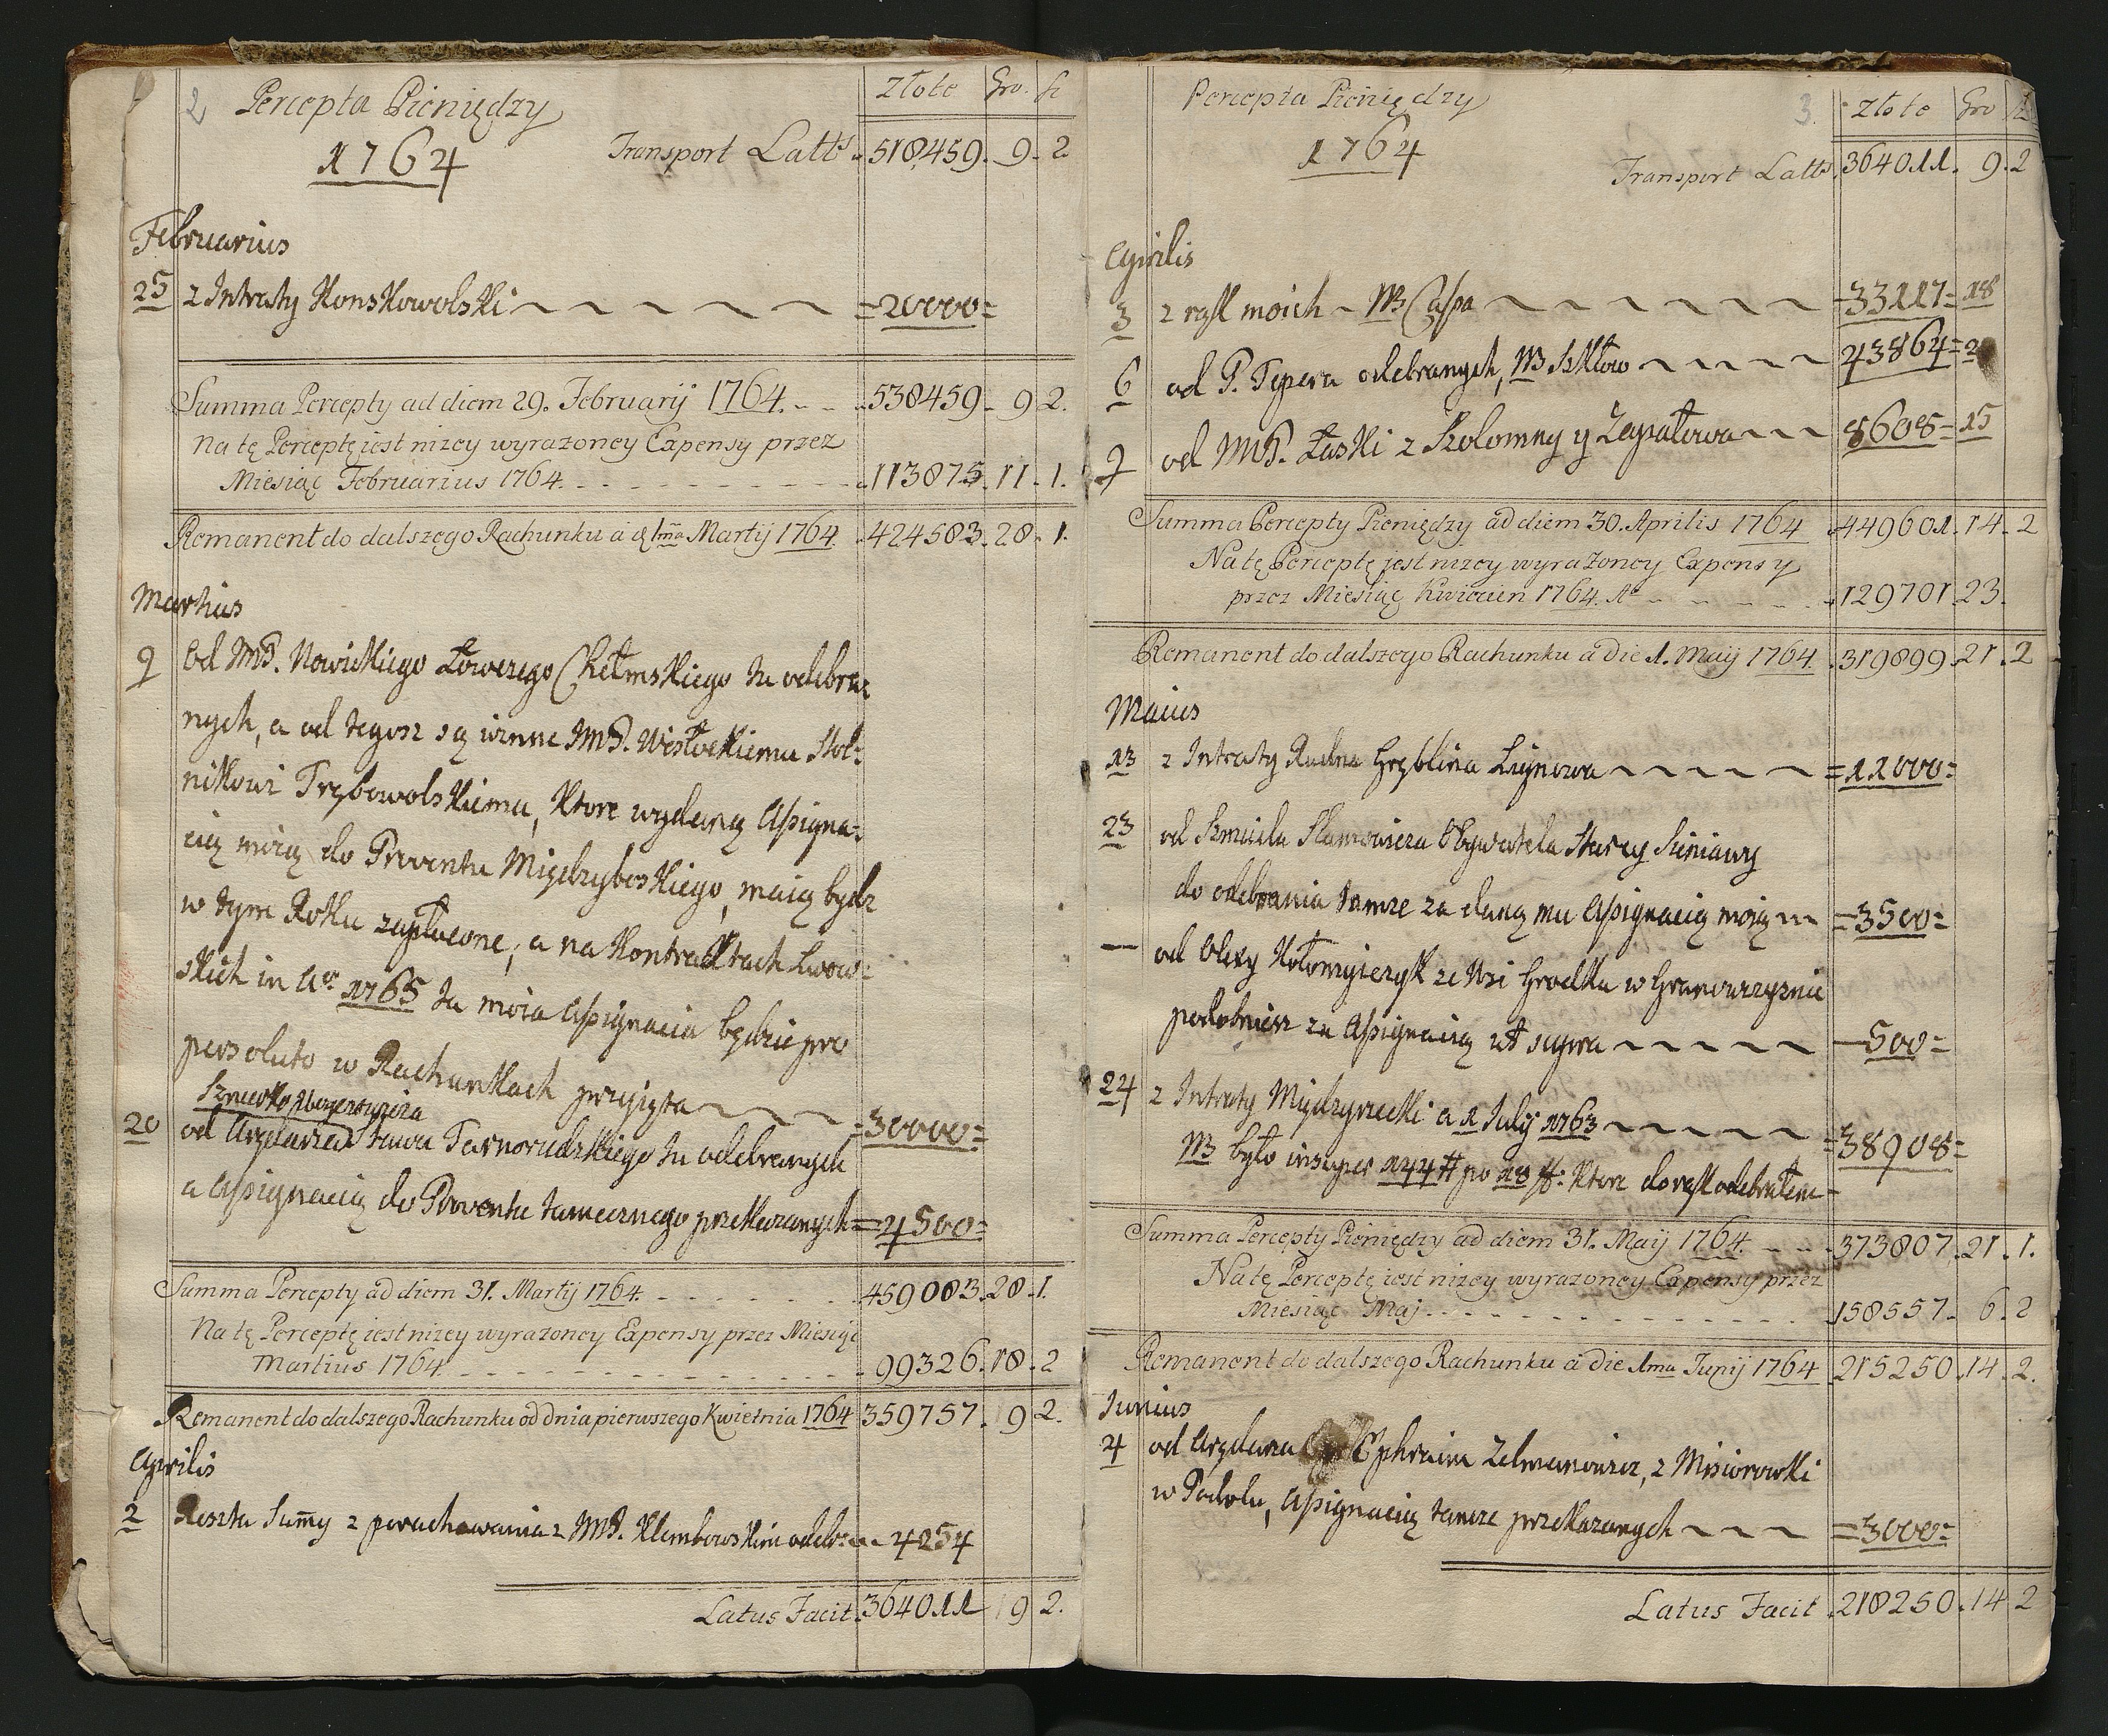 2 Percepta Pieniędzy Złote Gro. ſz
1764 Transport Latt⁹ 518459. 9. 2
Februarius
25 z Intraty Konskowolski =20000=
Summa Percepty ad diem 29. Februarij 1764. 538459. 9 2.
Na tę Perceptę iest nizey wyrazoney Expensy przez
Miesiąc Februarius 1764. 113875. 11. 1.
Remanent do dalszego Rachunku a d 1ma Martij 1764. 424583. 28. 1.
Martius
9 Od JMP. Nowickiego Łowczego Chełmskiego tu odebra
nych, a od tegosz są winne JMP. Wisłockiemu Stol:
nikowi Trębowolskiemu, ktore wydaną Assigna:
cią moią do Prowentu Międzyboskiego, maią bydz
w tym Roku zapłacone; a na Kontraktach Lwow:
skich in Aº 1765 ta moia Assignacia będzie pro
persoluto w Rachunkach przyięta =30000=
Szmuyła Mayerowicza
20 od Arędarza Stawu Tarnorudzkiego tu odebranych
a Assignacią do Prowentu tamecznego przekazanych =4500=
Summa Percepty ad diem 31. Martij 1764. 459083. 28. 1.
Na tę Perceptę iest nizey wyrazoney Expensy przez Miesiąc
Martius 1764. 99326. 18. 2
Remanent do dalszego Rachunku od dnia pierwszego Kwietnia 1764 359757. 9 2.
Aprilis
2 Reszta Summy z porachowania z JMP. Klembowskim odebr: 4254
Latus Facit. 364011 9 2.
Percepta Pieniędzy 3. Złote Gro ſz
1764
Transport Latt⁹ 364011. 9. 2
Aprilis
3 z rąk moich NB Cassa =33117= 18
6 od P. Tepera odebranych, NB Szkłow 43864=
9 od JMP. Łaski z Szolomny y Zapałowa 8608= 15
Summa Percepty Pieniędzy ad diem 30. Aprilis 1764 449601. 14. 2
Na tę Perceptę iest nizey wyrażoney Expensy
przez Miesiąc Kwiecien 1764. Aº 129701. 23.
Remanent do dalszego Rachunku a Die 1. Maij 1764. 319899. 21. 2
Maius
13 z Intraty Rudna Hręblina Lignowa =11000=
23 od Szmuila Slamowicza Obywatela Starey Sieniawy
do odebrania tamze za daną mu Assignacią moią =3500=
— od Olexy Kołomyiczyk ze Wsi Grodka w Granowszczyznie
podobniesz za Assignacią ut supra —500=
24 z Intraty Międzyrzecki a 1 July 1763 =38908=
NB było insuper 144# po 18 ff: ktore do rąk odebrałem
Summa Percepty Pieniędzy ad diem 31. Maij 1764. 373807. 21. 1.
Na tę Perceptę iest nizey wyrazoney Expensy przez
Miesiąc Maj 158557. 6. 2
Remanent do dalszego Rachunku a Die 1ma Junij 1764 215250. 14. 2.
Junius
4 od Arędarza Ephraima Zelmanowicz, z Misiorowki
w Podolu, Assignacią tamze przekazanych =3000=
Latus Facit 218250. 14 2